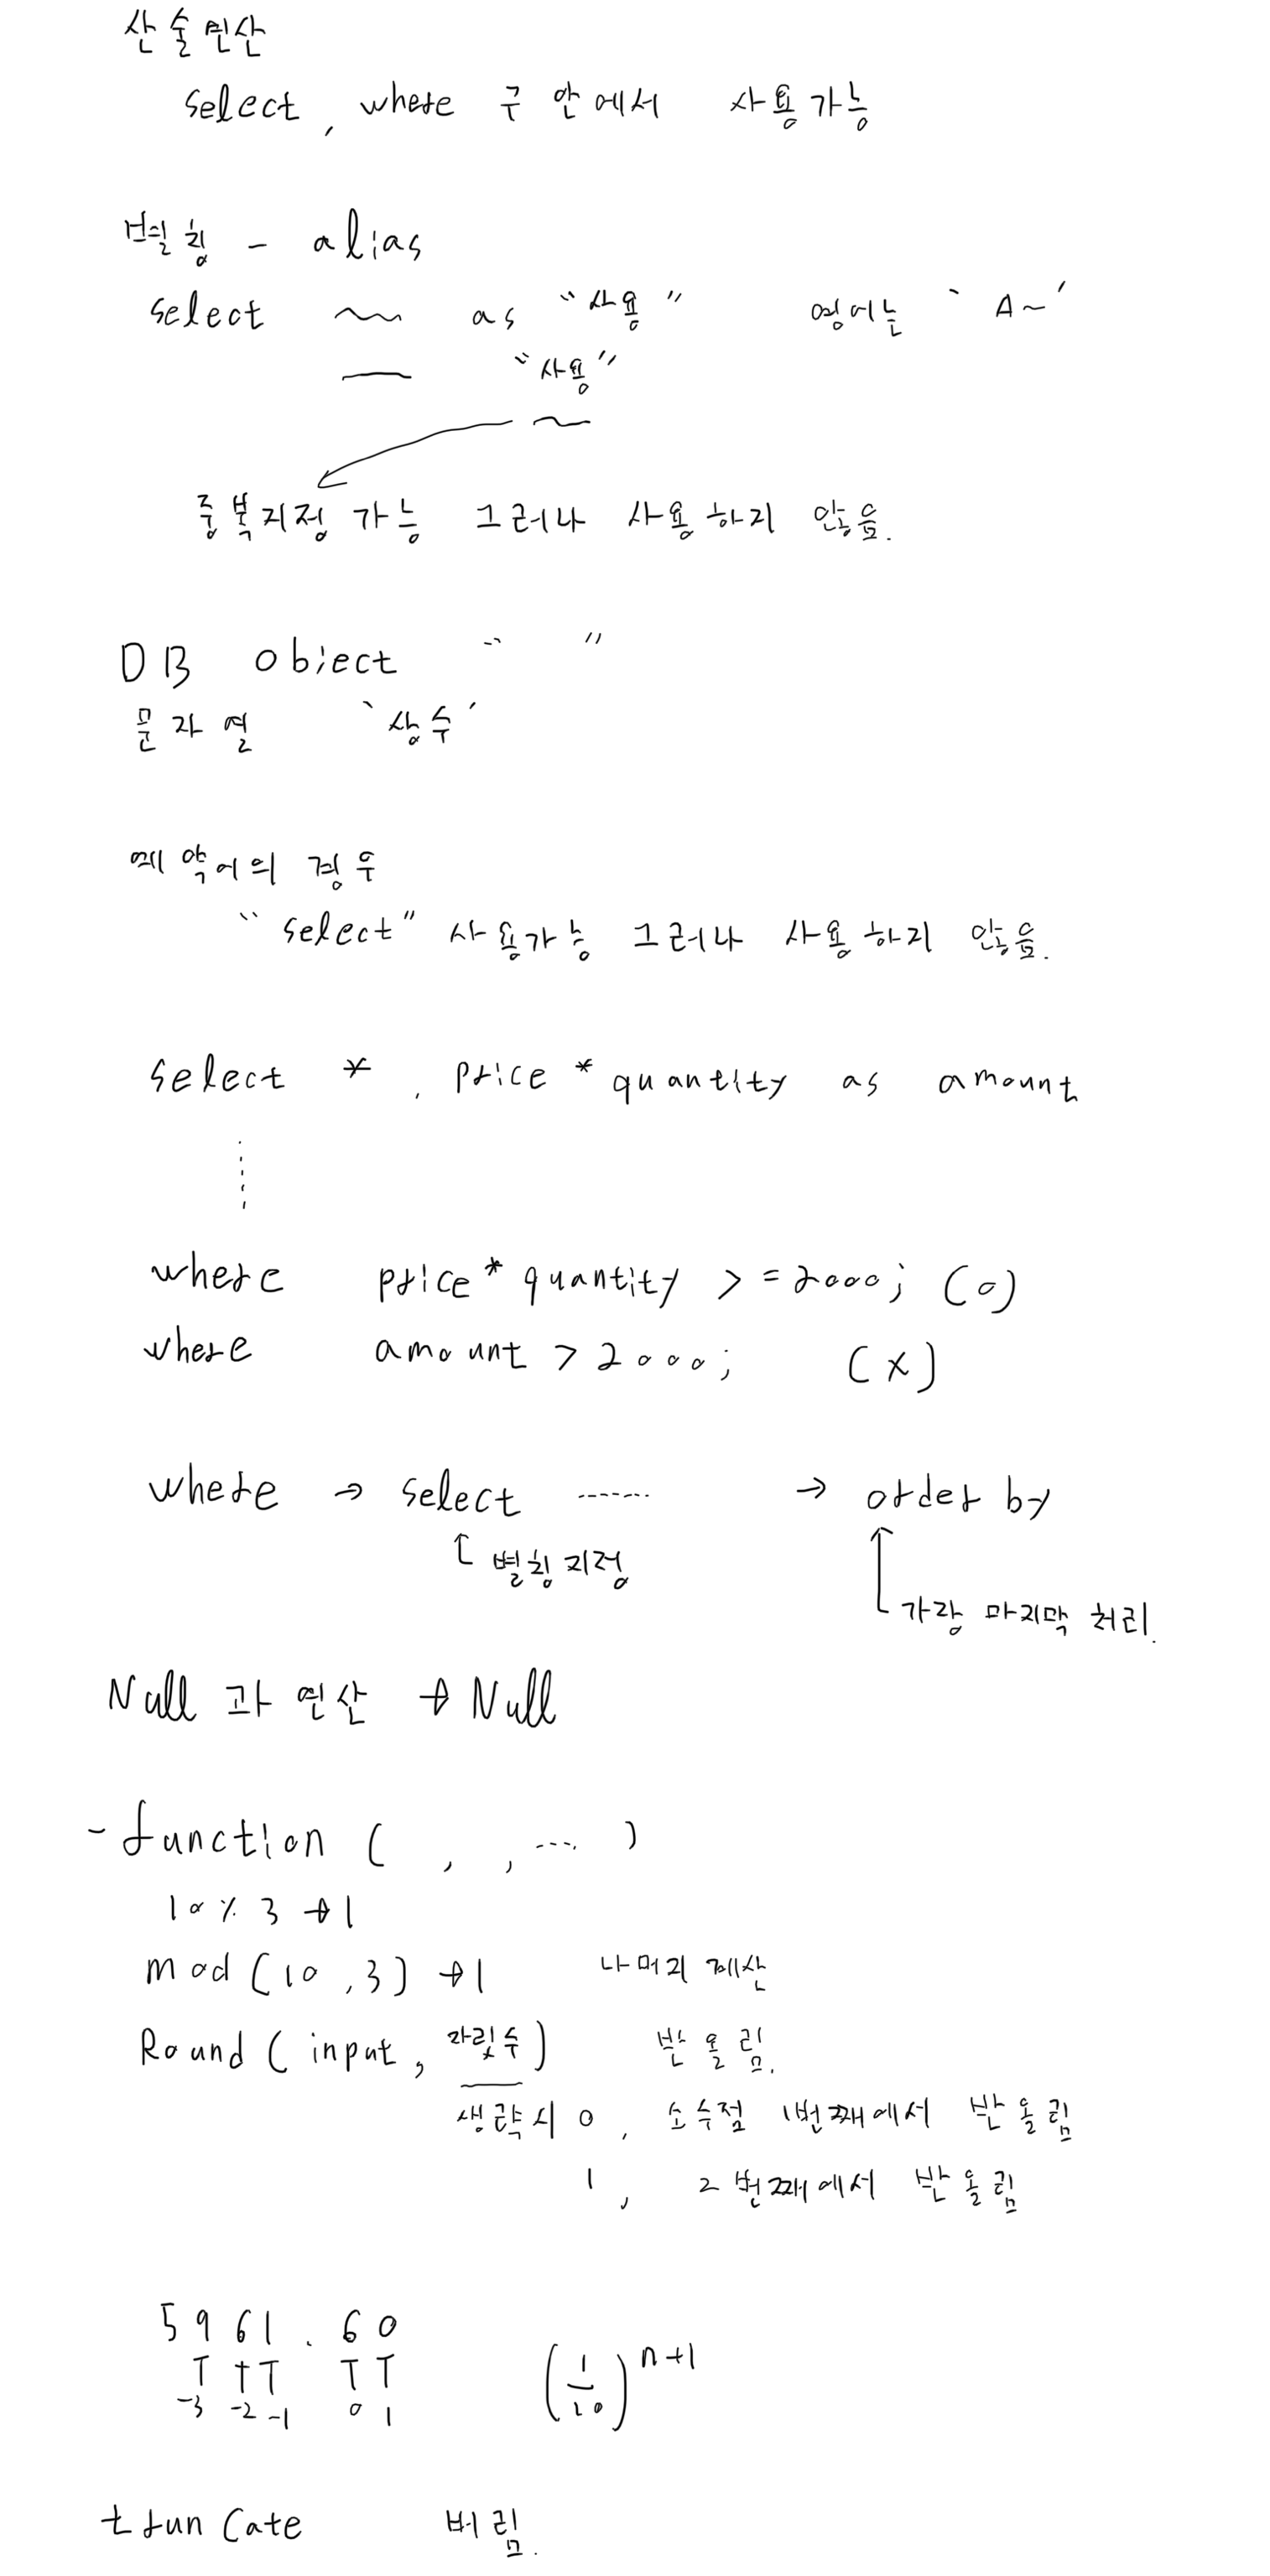 산술연산
select, where 구 안에서 사용가능
별칭 - alias
select ~~ as "사용" 영어는 'A~'
"사용"
중복지정 가능 그러나 사용하지 않음.
DB Object " "
문자열 '상수'
예약어의 경우
"select" 사용가능 그러나 사용하지 않음.
select * , price * quantity as amount
where price * quantity >= 2000; (O)
where amount > 2000; (X)
where → select ------- → order by
↑ 별칭지정
가장 마지막 처리.
Null 과 연산 → Null
- function ( , , ---- )
10 % 3 → 1
mod (10, 3) → 1 나머지 계산
Round ( input, 자릿수 ) 반올림.
생략시 0, 소수점 1번째에서 반올림
1, 2번째에서 반올림
5961.60
-3 -2 -1 0 1
(1/10)^n+1
trunCate 버림.